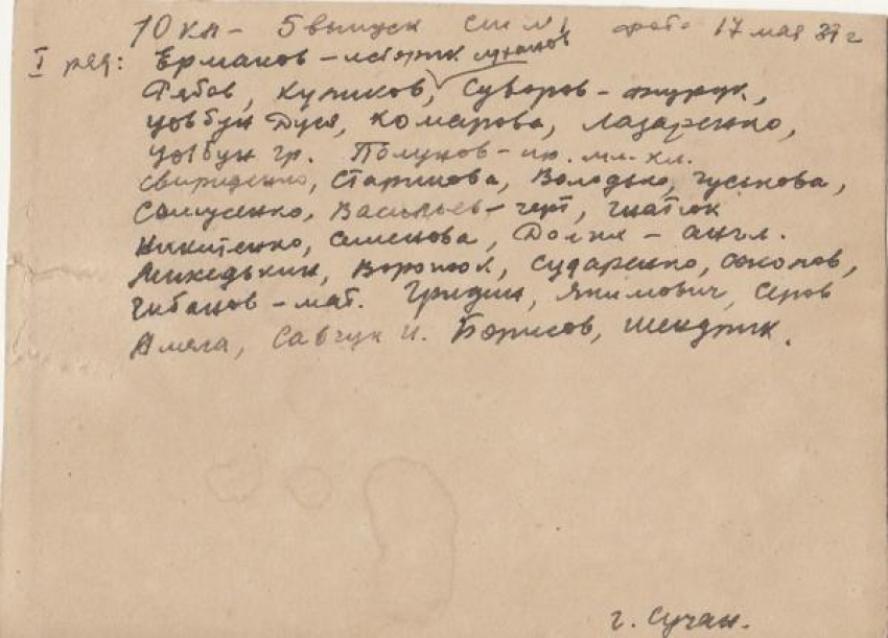 10 кл - 5 выпуск фото 17 мая 37 г
I ряд: Ермаков - историк
Рябов, Куликов, Суворов -
Цовбун Дуся, Комарова, Лазаренко,
Цовбун гр. Полунов - пр. мл. кл.
Свириденко, Старикова, Володько, Гуськова,
Самусенко, Васильев - черт, Гнатюк
Никитенко, Семенова, Долня - англ.
Михедькин, Воронюк, Сударенко, Соколов,
Чибанов - мат. Гридин, Якимович, Серов
Амела, Савчук И. Борисов, Шендрик.
г. Сучан.